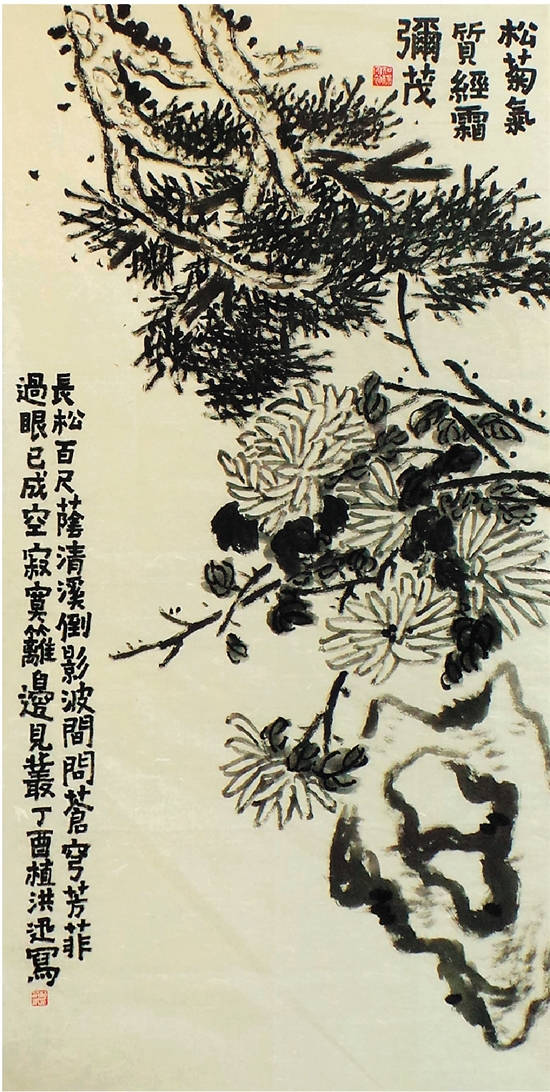 松菊氣
質經霜
彌茂
長松百尺蔭清溪倒影波間問蒼穹芳菲
過眼已成空寂寞籬邊見叢丁酉植洪迅寫